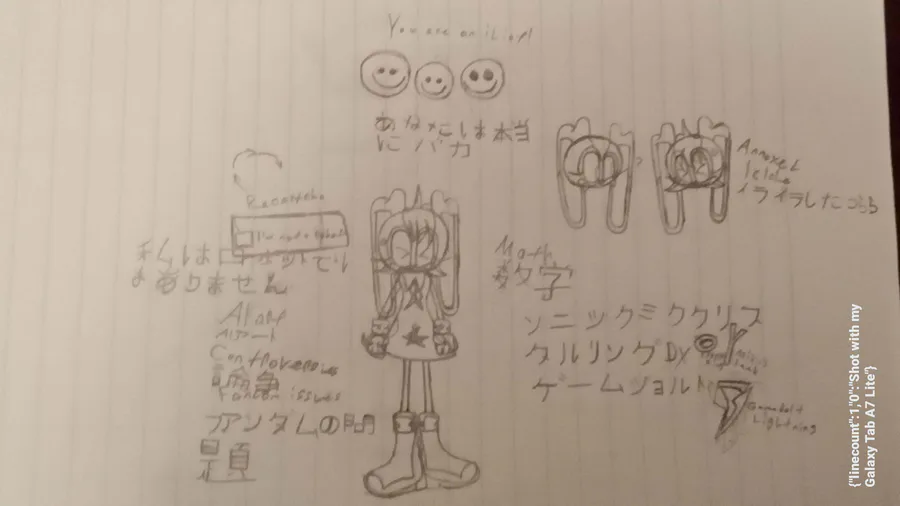 You are an idiot!
あなたは本当
にバカ
Annoyed
Icicle
イライラしたつらら
Recaptcha
I'm not a robot
私はロボットでは
ありません
Math
数学
Alone
Controversies
論争
Fandom issues
ファンダムの問
題
ソニックミククリス
タルリングDX
ゲームジョルト
Gamejolt
Lightning
{"linecount":1,"0":"Shot with my
Galaxy Tab A7 Lite"}